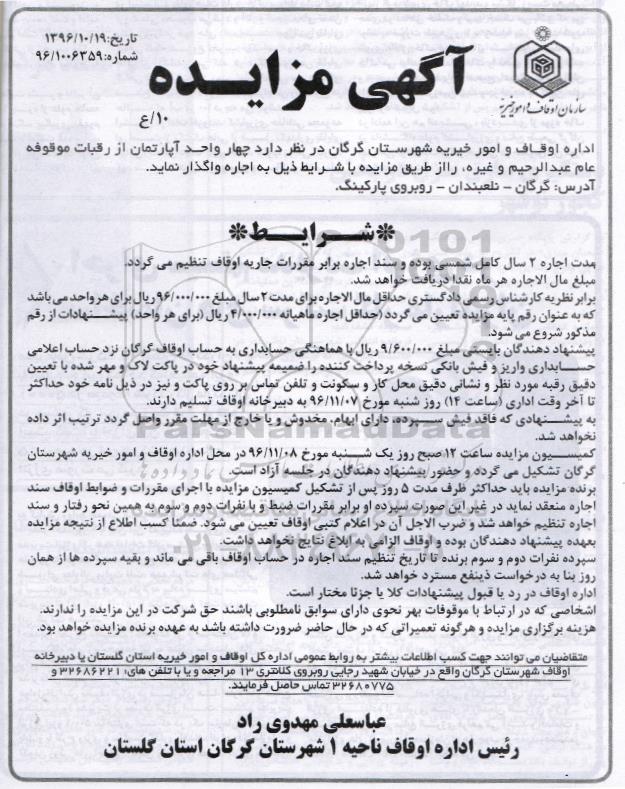 تاریخ:۱۳۹۶/۱۰/۱۹
شماره:۹۶/۱۰۰۶۳۵۹
سازمان اوقاف و امور خیریه
آگهی مزایده
۱۰/ع
اداره اوقاف و امور خیریه شهرستان گرگان در نظر دارد چهار واحد آپارتمان از رقبات موقوفه
عام عبدالرحیم و غیره، رااز طریق مزایده با شرایط ذیل به اجاره واگذار نماید.
آدرس: گرگان - نلعبندان - روبروی پارکینگ.
*شرایط*
مدت اجاره ۲ سال کامل شمسی بوده و سند اجاره برابر مقررات جاریه اوقاف تنظیم می گردد.
مبلغ مال الاجاره هر ماه نقدا دریافت خواهد شد.
برابر نظریه کارشناس رسمی دادگستری حداقل مال الاجاره برای مدت ۲ سال مبلغ ۹۶/۰۰۰/۰۰۰ ریال برای هر واحد می باشد
که به عنوان رقم پایه مزایده تعیین می گردد (حداقل اجاره ماهیانه ۴/۰۰۰/۰۰۰ ریال (برای هر واحد) پیشنهادات از رقم
مذکور شروع می شود.
پیشنهاد دهندگان بایستی مبلغ ۹/۶۰۰/۰۰۰ ریال با هماهنگی حسابداری به حساب اوقاف گرگان نزد حساب اعلامی
حسابداری واریز و فیش بانکی نسخه پرداخت کننده را ضمیمه پیشنهاد خود در پاکت لاک و مهر شده با تعیین
دقیق رقبه مورد نظر و نشانی دقیق محل کار و سکونت و تلفن تماس بر روی پاکت و نیز در ذیل نامه خود حداکثر
تا آخر وقت اداری (ساعت ۱۴) روز شنبه مورخ ۹۶/۱۱/۰۷ به دبیرخانه اوقاف تسلیم دارند.
به پیشنهادی که فاقد فیش سپرده، دارای ابهام، مخدوش و یا خارج از مهلت مقرر واصل گردد ترتیب اثر داده
نخواهد شد.
کمیسیون مزایده ساعت ۱۲ صبح روز یک شنبه مورخ ۹۶/۱۱/۰۸ در محل اداره اوقاف و امور خیریه شهرستان
گرگان تشکیل می گردد و حضور پیشنهاد دهندگان در جلسه آزاد است.
برنده مزایده باید حداکثر ظرف مدت ۵ روز پس از تشکیل کمیسیون مزایده با اجرای مقررات و ضوابط اوقاف سند
اجاره منعقد نماید در غیر این صورت سپرده او برابر مقررات ضبط و با نفرات دوم و سوم به همین نحو رفتار و سند
اجاره تنظیم خواهد شد و ضرب الاجل آن در اعلام کتبی اوقاف تعیین می شود. ضمنا کسب اطلاع از نتیجه مزایده
بعهده پیشنهاد دهندگان بوده و اوقاف الزامی به ابلاغ نتایج نخواهد داشت.
سپرده نفرات دوم و سوم برنده تا تاریخ تنظیم سند اجاره در حساب اوقاف باقی می ماند و بقیه سپرده ها از همان
روز بنا به درخواست ذینفع مسترد خواهد شد.
اداره اوقاف در رد یا قبول پیشنهادات کلا یا جزئا مختار است.
اشخاصی که در ارتباط با موقوفات بهر نحوی دارای سوابق نامطلوبی باشند حق شرکت در این مزایده را ندارند.
هزینه برگزاری مزایده و هرگونه تعمیراتی که در حال حاضر ضرورت داشته باشد به عهده برنده مزایده خواهد بود.
متقاضیان می توانند جهت کسب اطلاعات بیشتر به روابط عمومی اداره کل اوقاف و امور خیریه استان گلستان یا دبیرخانه
اوقاف شهرستان گرگان واقع در خیابان شهید رجایی روبروی کلانتری ۱۳ مراجعه و یا با تلفن های: ۳۲۶۸۶۲۲۱ و
۳۲۶۸۰۷۷۵ تماس حاصل فرمایند.
عباسعلی مهدوی راد
رئیس اداره اوقاف ناحیه ۱ شهرستان گرگان استان گلستان
ParsNamadData